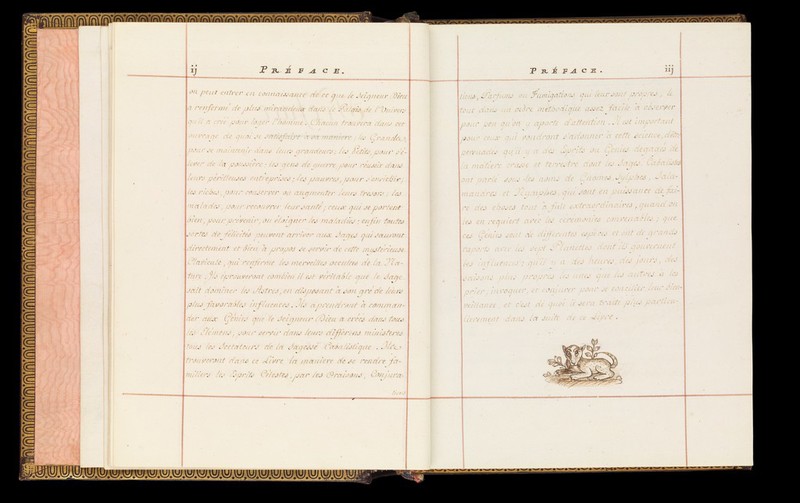 ij
PRÉFACE.
on peut entrer en connaissance de ce que le Seigneur Dieu
a renfermé de plus mistérieux dans le Palais de l'Univers
qu'il a créé pour loger l'homme. Chacun trouvera dans cet
ouvrage de quoi se satisfaire à sa manière; les Grands,
pour se maintenir dans leurs grandeurs; les Petits, pour s'é-
lever de la poussière; les gens de guerre, pour réussir dans
leurs périlleuses entreprises; les pauvres, pour s'enrichir;
les riches, pour conserver ou augmenter leurs trésors; les
malades, pour recouvrer leur santé; ceux qui se portent
bien, pour prévenir, ou éloigner les maladies; enfin toutes
sortes de félicités peuvent arriver aux Sages qui sauront
directement et bien à propos se servir de cette mystérieuse
Clavicule, qui renferme les merveilles secrettes de la Na-
ture. Ils éprouveront combien il est véritable que le Sage
doit dominer les Astres, en disposant à son gré de leurs
plus favorables influences. Ils aprendront à comman-
der aux Génies que le Seigneur Dieu a créés dans tous
les Elémens, pour servir dans leurs différens ministères
tous les Sectateurs de la Sagesse Cabalistique. Ils
trouveront dans ce Livre la manière de se rendre fa-
miliers les Esprits Célestes, par des Oraisons, Conjura-
PRÉFACE.
iij
tions, Parfums ou Fumigations qui leur sont propres; le
tout dans un ordre méthodique assez facile à observer
pour peu qu'on y aporte d'attention. Il est important
pour ceux qui voudront s'adonner à cette science, d'être
persuadés qu'il y a des Esprits ou Génies dégagés de
la matière crasse et terrestre dont les Sages Cabalistes
ont parlé sous les noms de Gnomes, Sylphes, Sala-
mandres et Nymphes, qui sont en puissance de fai-
re des choses tout à fait extraordinaires, quand on
les en requiert avec les cérémonies convenables; que
ces Génies sont de différentes espèces et ont de grands
raports avec les sept Planètes dont ils gouvernent
les influences; qu'il y a des heures, des jours, des
saisons plus propres les unes que les autres à les
prier, invoquer, et conjurer pour se concilier leur bien-
veillance et c'est de quoi il sera traité plus particu-
lièrement dans la suite de ce Livre.